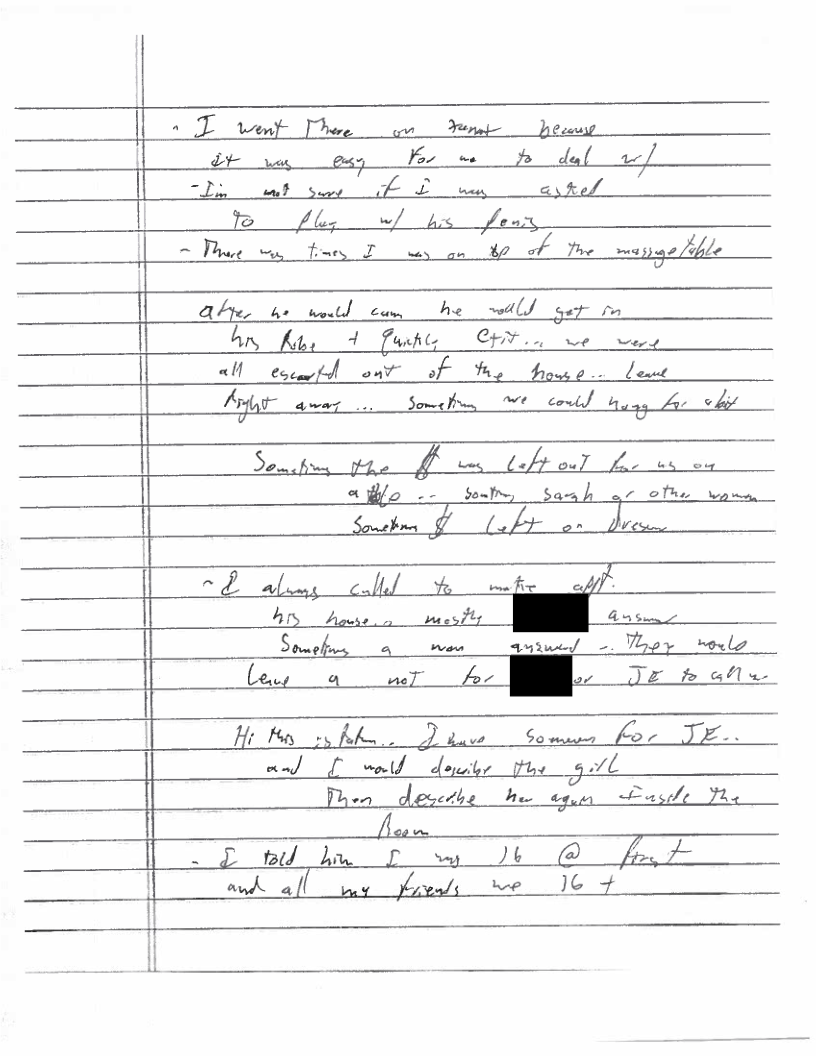 - I went there on because
it was easy for me to deal w/
- I'm not sure if I was asked
to play w/ his penis
- There was times I was on top of the massage table
after he would cum he would get in
his Robe + quickly Exit... we were
all escorted out of the house... leave
Right away... Sometimes we could hang for a bit
Sometimes the $ was left out for us on
a .. sometimes Sarah or other woman
Sometimes $ left on Dresser
- I always called to make appt.
his house.. mostly answer
Sometimes a man answered .. They would
leave a not for or JE to call
Hi this is .. I have someone for JE..
and I would describe the girl
Then describe her again inside the
Room
- I told him I was 16 @ first
and all my friends we 16 +